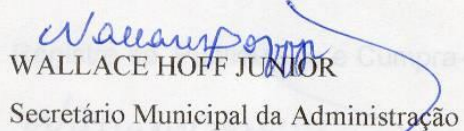 WALLACE HOFF JUNIOR
Secretário Municipal da Administração